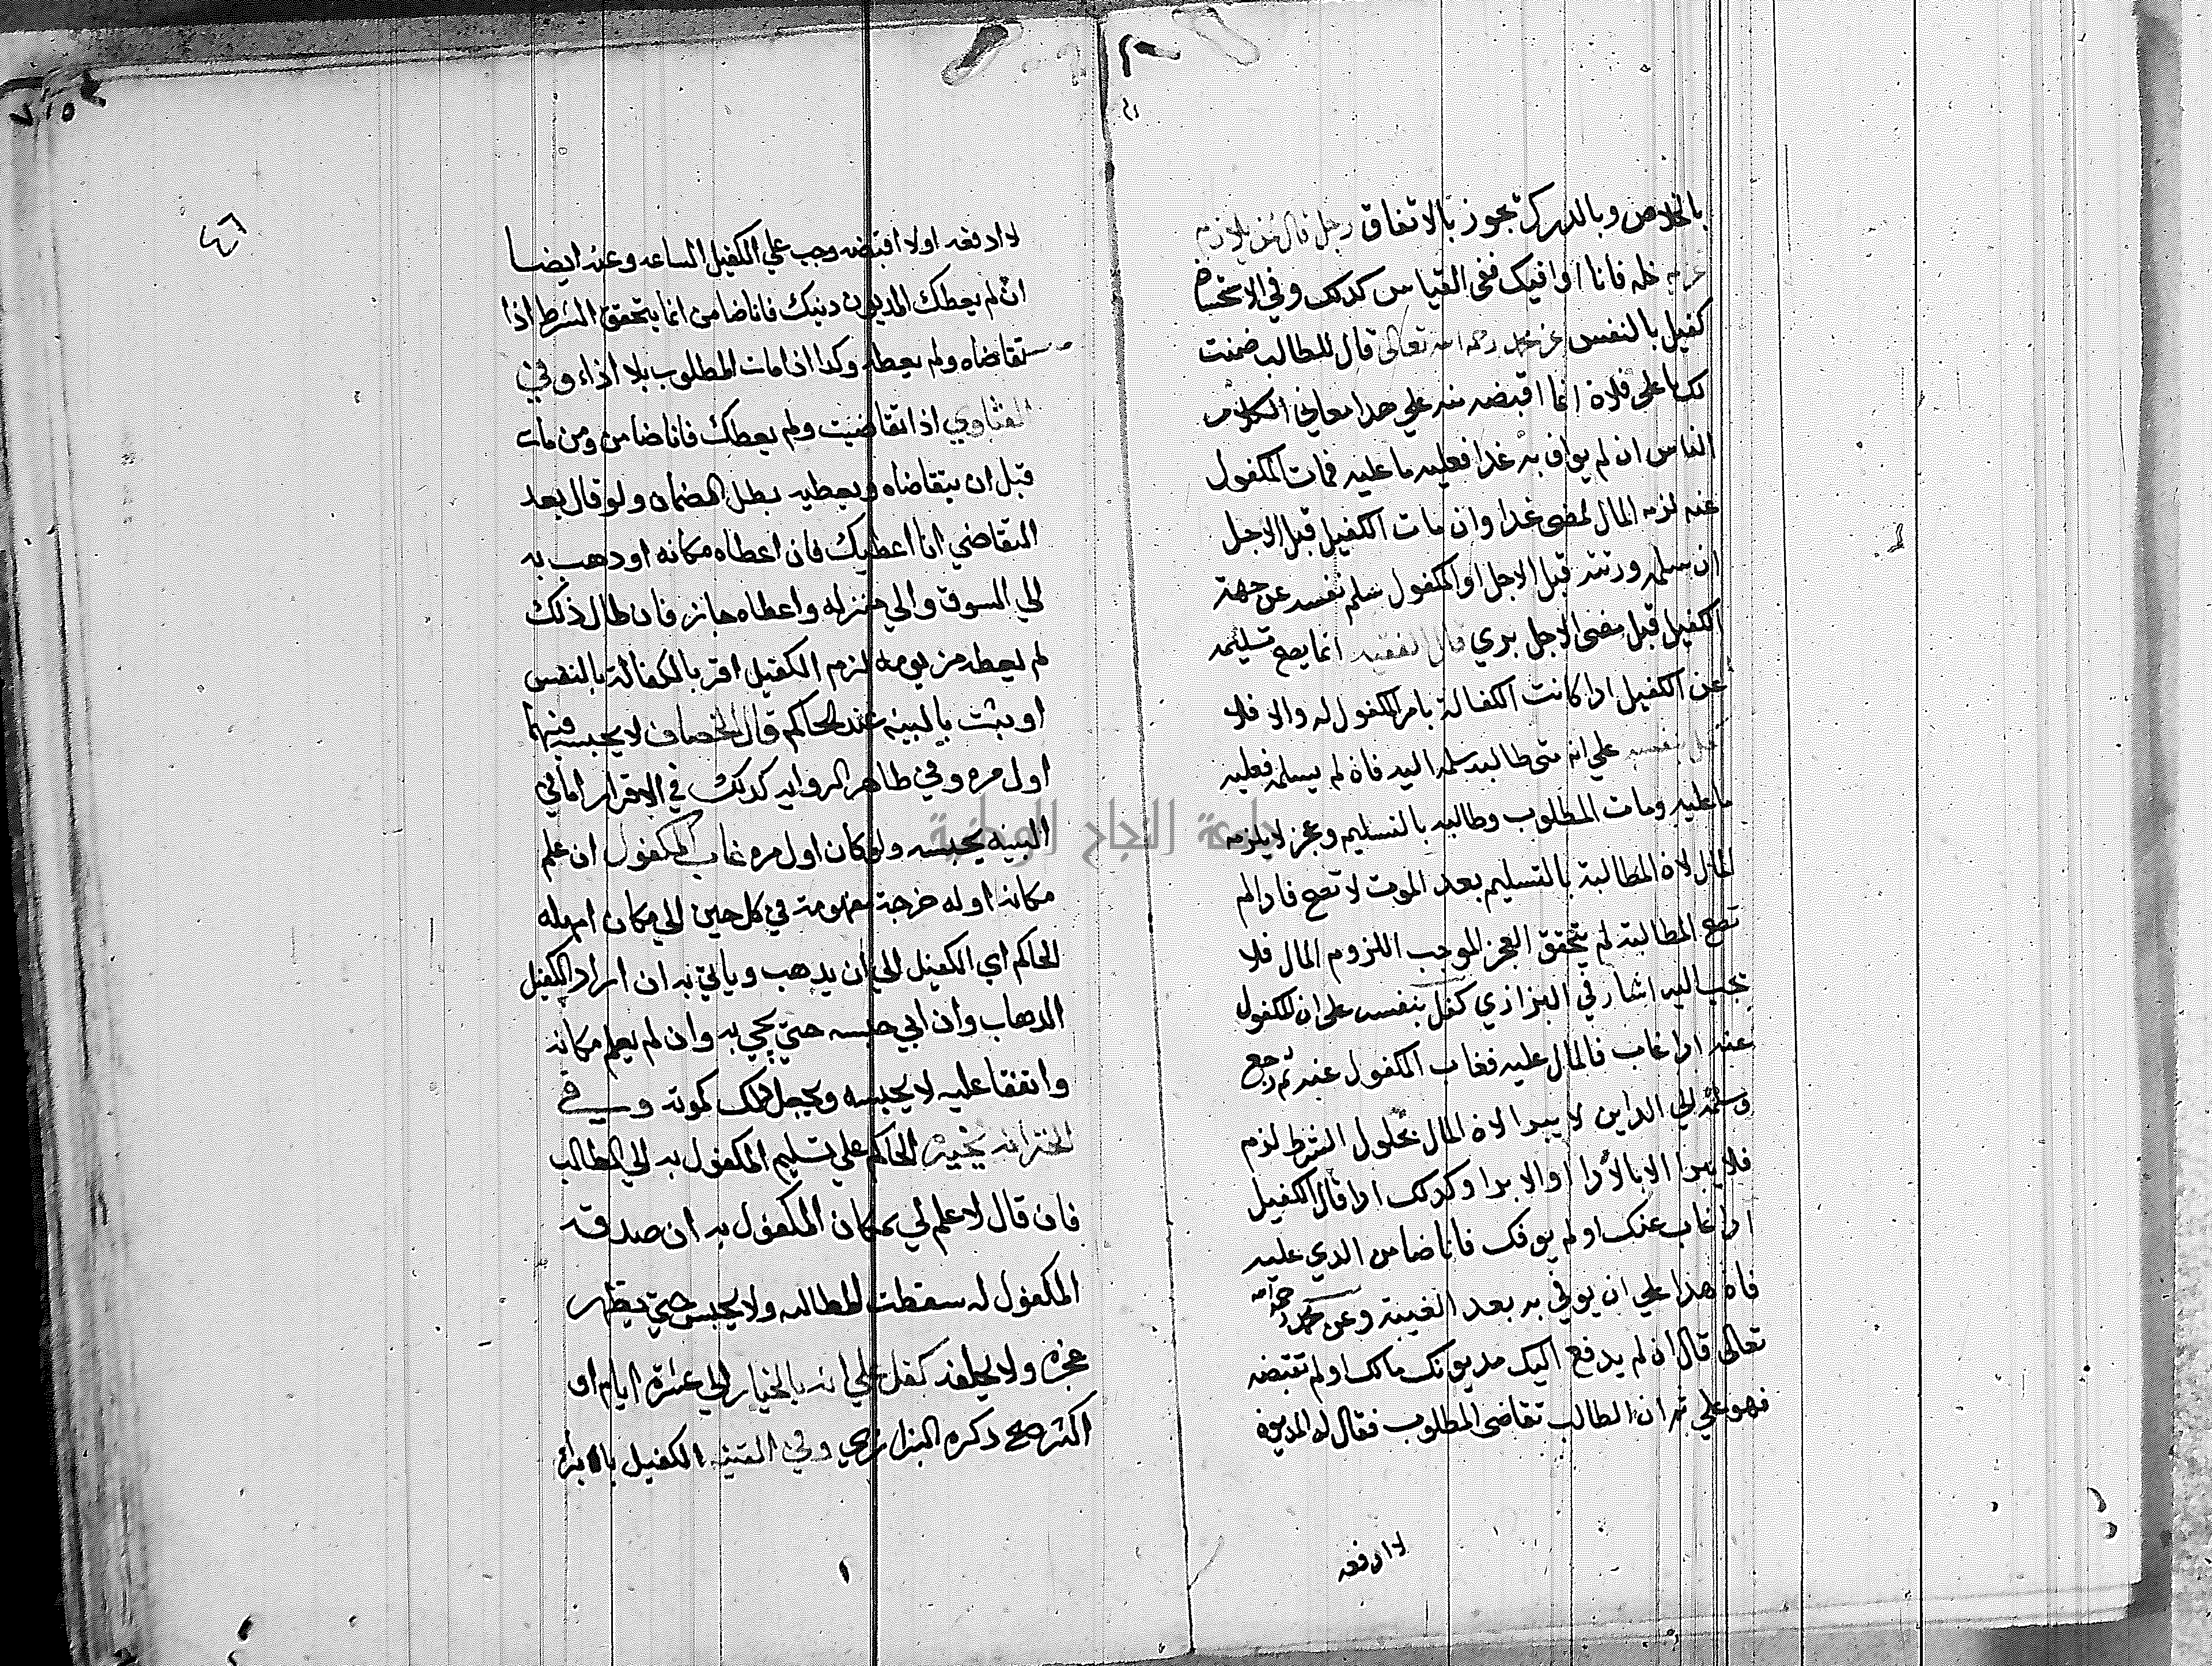 بالخلاص وبالدرك يجوز بالاتفاق رجل قال لمن يلازم
غريمه خله فانا اوافيك ففي القياس كذلك وفي الاستحسان
كفيل بالنفس عن محمد رحمه الله تعالى قال للطالب ضمنت
لك ما على فلان انما اقبضه منه على هذا معاني الكلام
الناس ان لم يواف به غدا فعليه ما عليه فمات المكفول
عنه لزمه المال لمضي غدا وان مات الكفيل قبل الاجل
ان سلمه ورثته قبل الاجل او المكفول سلم نفسه عن جهة
الكفيل قبل مضى الاجل بري قال الفقيه انما يصح تسليمه
عن الكفيل اذا كانت الكفالة بامر المكفول له والا فلا
كفل بنفسه علي انه متى طالبه سلمه اليه فان لم يسلمه فعليه
ما عليه ومات المطلوب وطالبه بالتسليم وعجز لا يلزمه
المال لان المطالبة بالتسليم بعد الموت لا تصح فاذا لم
تصح المطالبة لم يتحقق العجز الموجب اللزوم المال فلا
يجب اليه اشار في البزازي كفل بنفسه على ان المكفول
عنه اذا غاب فالمال عليه فغاب المكفول عنه ثم رجع
وسلمه الي الداين لا يبرا لان المال بحلول الشرط لزم
فلا يبرا الا بالادا او الابرا وكذلك اذا قال الكفيل
اذا غاب عنك او لم يوفك فانا ضامن الذي عليه
فان هذا علي ان يوفي به بعد الغيبة وعن محمد رحمه الله
تعالى قال ان لم يدفع اليك مديونك مالك او لم تقبضه
فهو علي ثم ان الطالب تقاضى المطلوب فقال له المديون
لا ادفعه
٤٦
لا ادفعه او لا اقبضه وجب علي الكفيل الساعه وعنه ايضا
ان لم يعطك المديون دينك فانا ضامن انما يتحقق الشرط اذا
تقاضاه ولم يعطه وكذا اذا مات المطلوب بلا اداء وفي
الفتاوي اذا تقاضيت ولم يعطك فانا ضامن ومن مات
قبل ان يتقاضاه ويعطيه بطل الضمان ولو قال بعد
التقاضي انا اعطيك فان اعطاه مكانه او ذهب به
الي السوق والي منزله واعطاه جاز فان طال ذلك
لم يعطه من يومه لزم الكفيل اقر بالكفالة بالنفس
او يثبت بالبينه عند الحاكم قال الخصاف لا يحبسه فيهما
اول مره وفي ظاهر الروايه كذلك في الاقرار اما في
البينه يحبسه ولو كان اول مره غاب المكفول ان علم
مكانه او له خرجة مفهومة في كل حين الي مكان امهله
الحاكم اي الكفيل الي ان يذهب وياتي به ان اراد الكفيل
الذهاب وان ابي حبسه حتي يجي به وان لم يعلم مكانه
واتفقا عليه لا يحبسه ويجعل ذلك كموته وفي
الخزانه يجبر الحاكم علي تسليم المكفول به الي الطالب
فان قال لا علم لي بمكان المكفول به ان صدقه
المكفول له سقطت المطالبه ولا يحبس حتي يظهر
عجزه ولا يحلفه كفل علي انه بالخيار الي عشرة ايام او
اكثر صح ذكره البزازي وفي القنيه الكفيل بالابرا
جامعة النجاح الوطنية